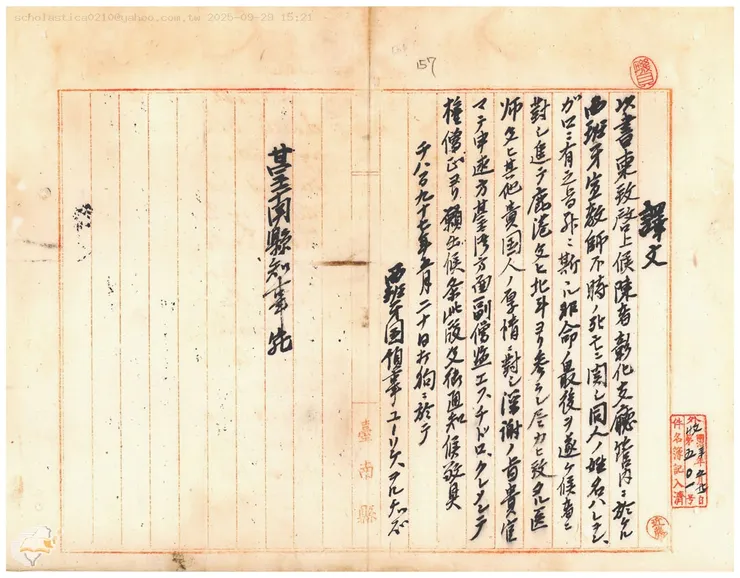 scholastica0210@yahoo.com.tw 2025-09-29 15:21
157
譯文
以書柬致啓上候陳者彰化支廳管内ニ於ケル
西班牙宣教師不時ノ死亡ニ関シ同人ノ姓名ハレヲン、
ガロニ有之旨外ニ斯ル非命ノ最後ヲ遂ケ候者ニ
對シ進テ鹿港文ヒ北斗ヨリ参ラレ尽力ヒ致タル医
师文ヒ其他貴国人ノ厚情ニ對シ深謝ノ旨貴官
マテ申述方臺湾方面副僧監エスチドロ、クレメンテ
権僧正ヨリ願出候条此段文街通知候敬具
千八百九十七年五月二十日打狗ニ於テ
西班牙国領事ユーリケス、アルチッズ
臺南縣知事宛
臺南縣
外
第五〇一号
件名簿記入濟
近藤